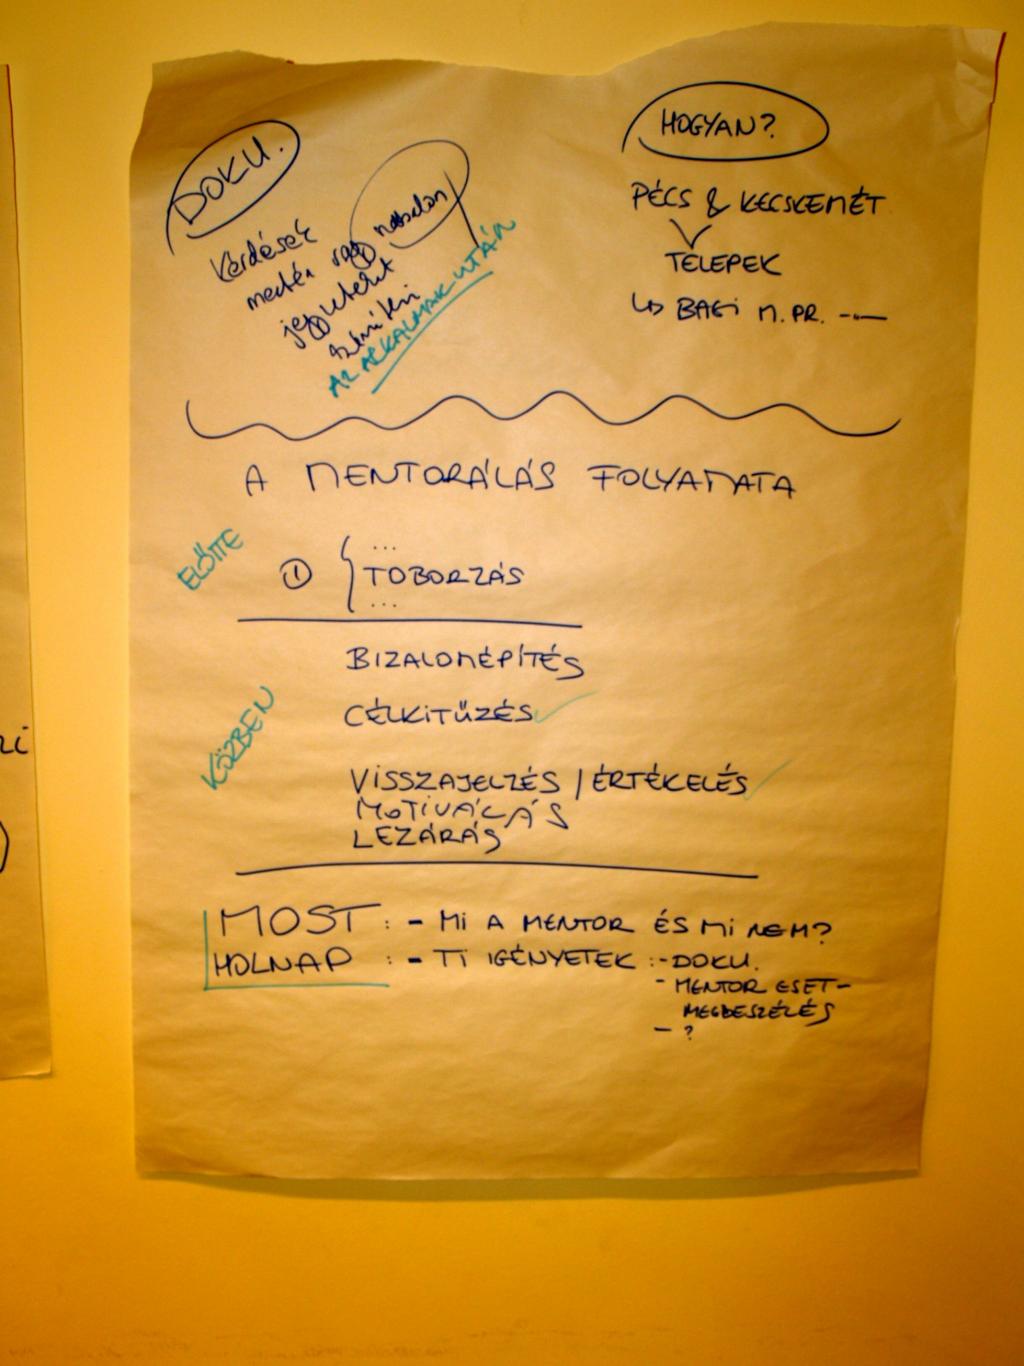 DOKU.
Kérdések
mentén vagy szabadon
jegyzetelést
AZ ALKALMAK UTÁN
HOGYAN?
PÉCS & KECSKEMÉT
TELEPEK
↳ BAGI M. PR. -·—
A MENTORÁLÁS FOLYAMATA
ELŐTTE
...
① TOBORZÁS
...
BIZALOMÉPÍTÉS
KÖZBEN
CÉLKITŰZÉS ✓
VISSZAJELZÉS / ÉRTÉKELÉS ✓
MOTIVÁLÁS
LEZÁRÁS
MOST : - MI A MENTOR ÉS MI NEM?
HOLNAP : - TI IGÉNYETEK : - DOKU.
- MENTOR ESET-
MEGBESZÉLÉS
- ?